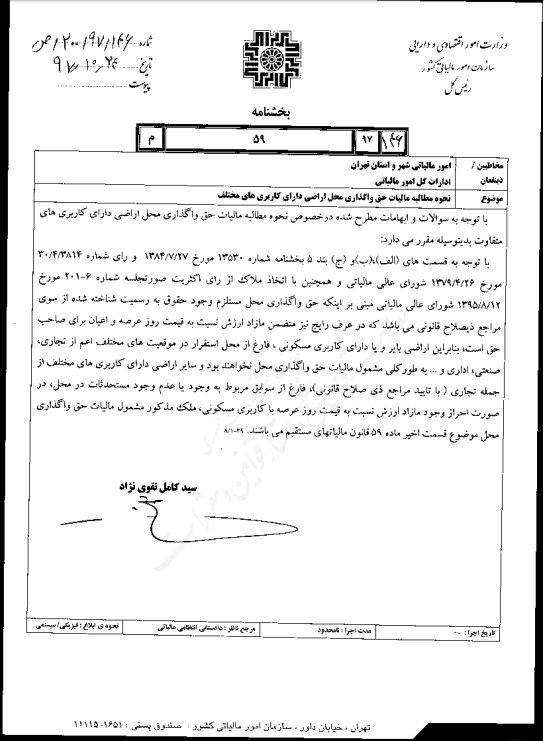 وزارت امور اقتصادی و دارایی
سازمان امور مالیاتی کشور
رئیس کل
شماره ۲۰۰/۹۷/۱۴۶/ص
تاریخ ۹۷/۱۰/۲۴
پیوست
بخشنامه
۱۴۶ ۹۷ ۵۹ م
مخاطبین / ذینفعان
امور مالیاتی شهر و استان تهران
ادارات کل امور مالیاتی
موضوع نحوه مطالبه مالیات حق واگذاری محل اراضی دارای کاربری های مختلف
با توجه به سوالات و ابهامات مطرح شده درخصوص نحوه مطالبه مالیات حق واگذاری محل اراضی دارای کاربری های
متفاوت بدینوسیله مقرر می دارد:
با توجه به قسمت های (الف)،(ب)و (ج) بند ۵ بخشنامه شماره ۱۳۵۳۰ مورخ ۱۳۸۴/۷/۲۷ و رای شماره ۳۰/۴/۳۸۱۴
مورخ ۱۳۷۹/۴/۲۶ شورای عالی مالیاتی و همچنین با اتخاذ ملاک از رای اکثریت صورتجلسه شماره ۶-۲۰۱ مورخ
۱۳۹۵/۸/۱۲ شورای عالی مالیاتی مبنی بر اینکه حق واگذاری محل مستلزم وجود حقوق به رسمیت شناخته شده از سوی
مراجع ذیصلاح قانونی می باشد که در عرف رایج نیز متضمن مازاد ارزش نسبت به قیمت روز عرصه و اعیان برای صاحب
حق است، بنابراین اراضی بایر و یا دارای کاربری مسکونی ، فارغ از محل استقرار در موقعیت های مختلف اعم از تجاری،
صنعتی، اداری و ... به طورکلی مشمول مالیات حق واگذاری محل نخواهند بود و سایر اراضی دارای کاربری های مختلف از
جمله تجاری ( با تایید مراجع ذی صلاح قانونی)، فارغ از سوابق مربوط به وجود یا عدم وجود مستحدثات در محل، در
صورت احراز وجود مازاد ارزش نسبت به قیمت روز عرصه با کاربری مسکونی، ملک مذکور مشمول مالیات حق واگذاری
محل موضوع قسمت اخیر ماده ۵۹ قانون مالیاتهای مستقیم می باشند. ۸/۱-۲۹
سید کامل تقوی نژاد
تاریخ اجرا : --- مدت اجرا : نامحدود مرجع ناظر : دادستانی انتظامی مالیاتی نحوه ی ابلاغ : فیزیکی/ سیستمی
تهران ، خیابان داور ، سازمان امور مالیاتی کشور : صندوق پستی : ۱۶۵۱-۱۱۱۱۵